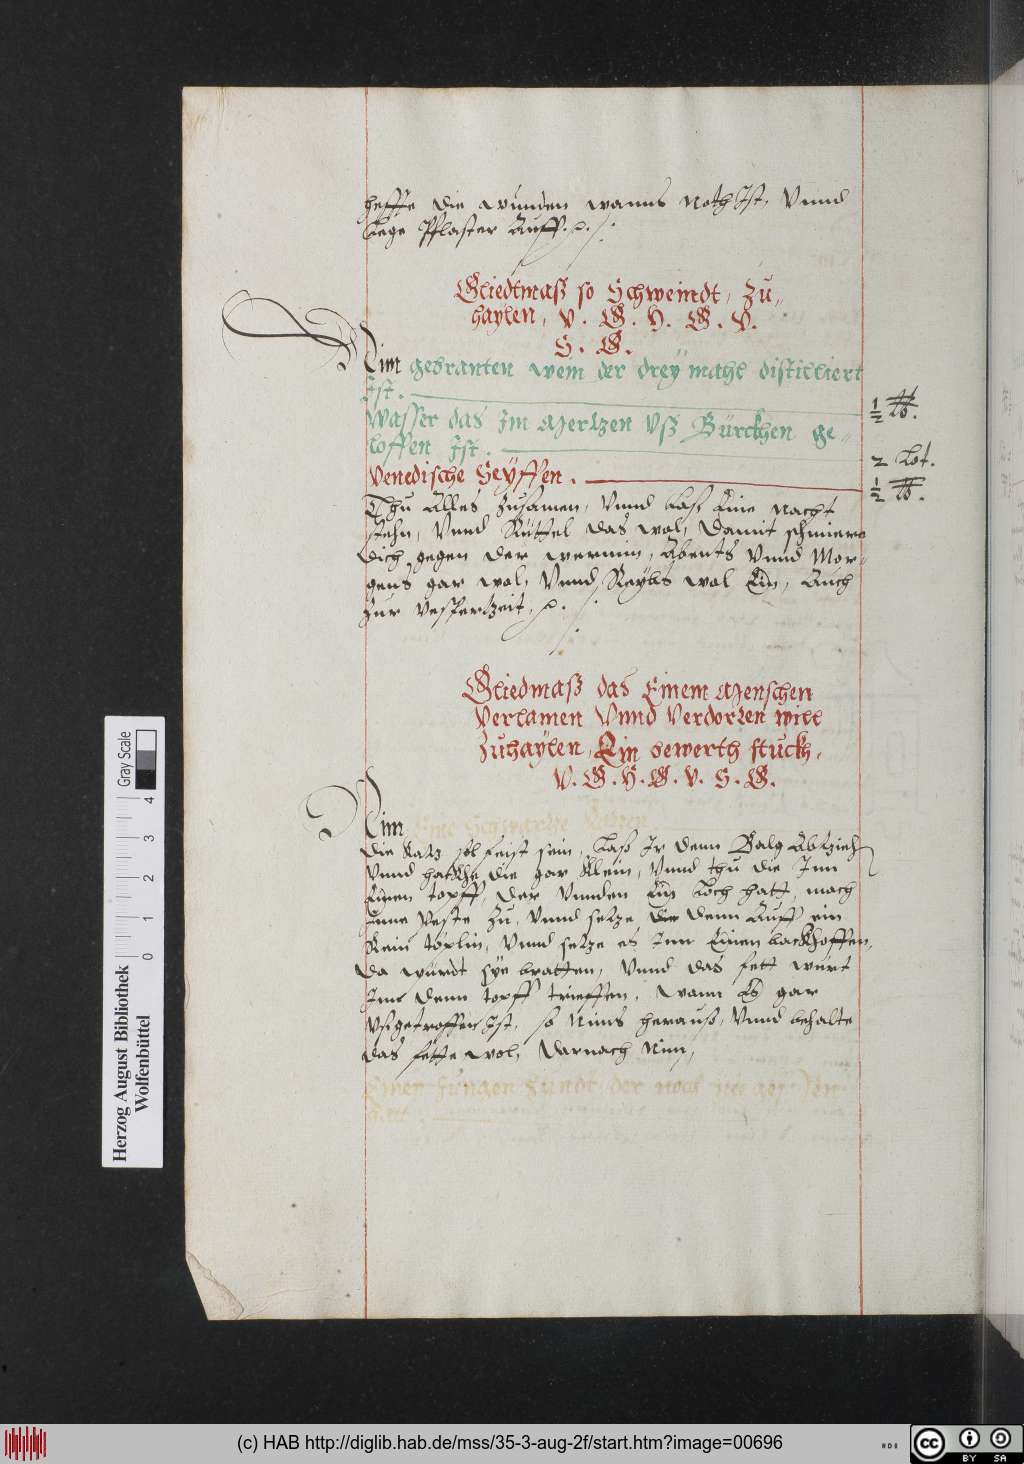 heffte die wunden wanns noth Ist, Vnnd
Lege Pflaster Auff.
Gliedtmaß so Schweindt, zu„
haylen, V. G. H. G. V.
S. G.
Nim gebranten wein der drey mahl distilliert
Ist.
½ ℔.
Wasser das Im Mertzen Vß Bürckhen ge„
loffen Ist.
2 Lot.
Venedische Seyffen.
½ ℔.
Thu Alles Zusamen, Vnnd Lass Eine Nacht
stehn, Vnnd Rüttel das wol, Damit schmiere
dich gegen der wermin, Abents Vnnd Mor„
gens gar wol, Vnnd Reybs wol Ein, Auch
Zur Vesperzeit,
Gliedmaß das Einem Menschen
Verlamen Vnnd Verdorren will
Zuhaylen, Ein bewerth stuckh,
V. G. H. G. V. S. G.
Nim Eine Schwartze Katzen
die Katz sol feist sein, Lass Ir denn Balg Abzieh
Vnnd hackhe die gar klein, Vnnd thu die Inn
Einen topff, der Vnnden Ein Loch hatt, mach
Inne Veste Zu, Vnnd setze denn Auff ein
klein töplin, Vnnd setze es Inn Einen backhoffen,
Da würdt sye bratten, Vnnd das fett würt
Inn denn topff trieffen, wann Es gar
Vßgetroffen Ist, so Nims herauß, Vnnd behalte
das fette wol, Darnach Nim,
Einen Jungen Hundt der noch nie
Herzog August Bibliothek
Wolfenbüttel
Gray Scale
0 1 2 3 4
(c) HAB http://diglib.hab.de/mss/35-3-aug-2f/start.htm?image=00696
cc BY SA